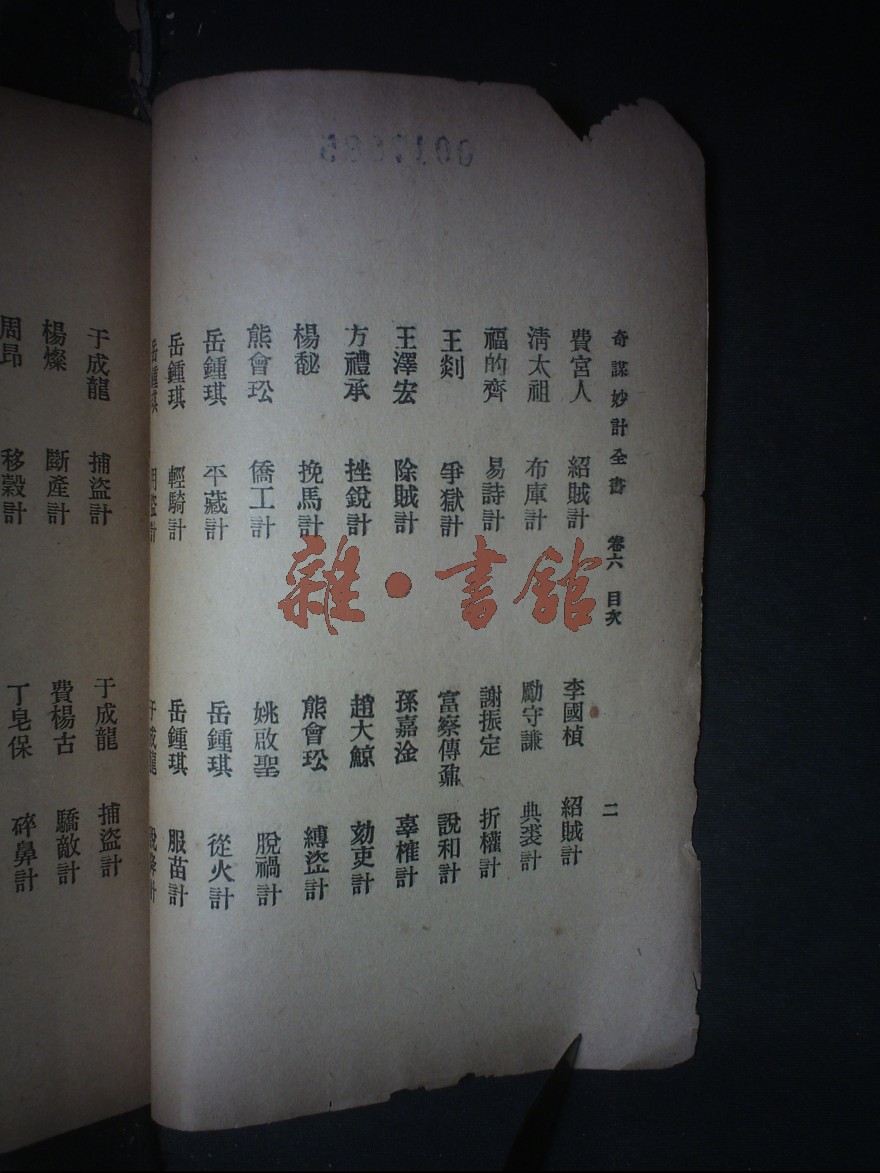 奇謀妙計全書 卷六 目次 二
費宮人 紹賊計
李國楨 紹賊計
清太祖 布庫計
勵守謙 典裘計
福的齊 易詩計
謝振定 折權計
王剡 爭獄計
富察傅鼐 說和計
王澤宏 除賊計
孫嘉淦 辜榷計
方禮承 挫銳計
趙大鯨 劾吏計
楊馝 挽馬計
熊會玜 縛盜計
熊會玜 僑工計
姚啟聖 脫禍計
岳鍾琪 平藏計
岳鍾琪 從火計
岳鍾琪 輕騎計
岳鍾琪 服苗計
岳鍾琪 用盜計
于成龍
于成龍 捕盜計
于成龍 捕盜計
楊燦 斷產計
費楊古 驕敵計
周昂 移穀計
丁皂保 碎鼻計
雜·書館